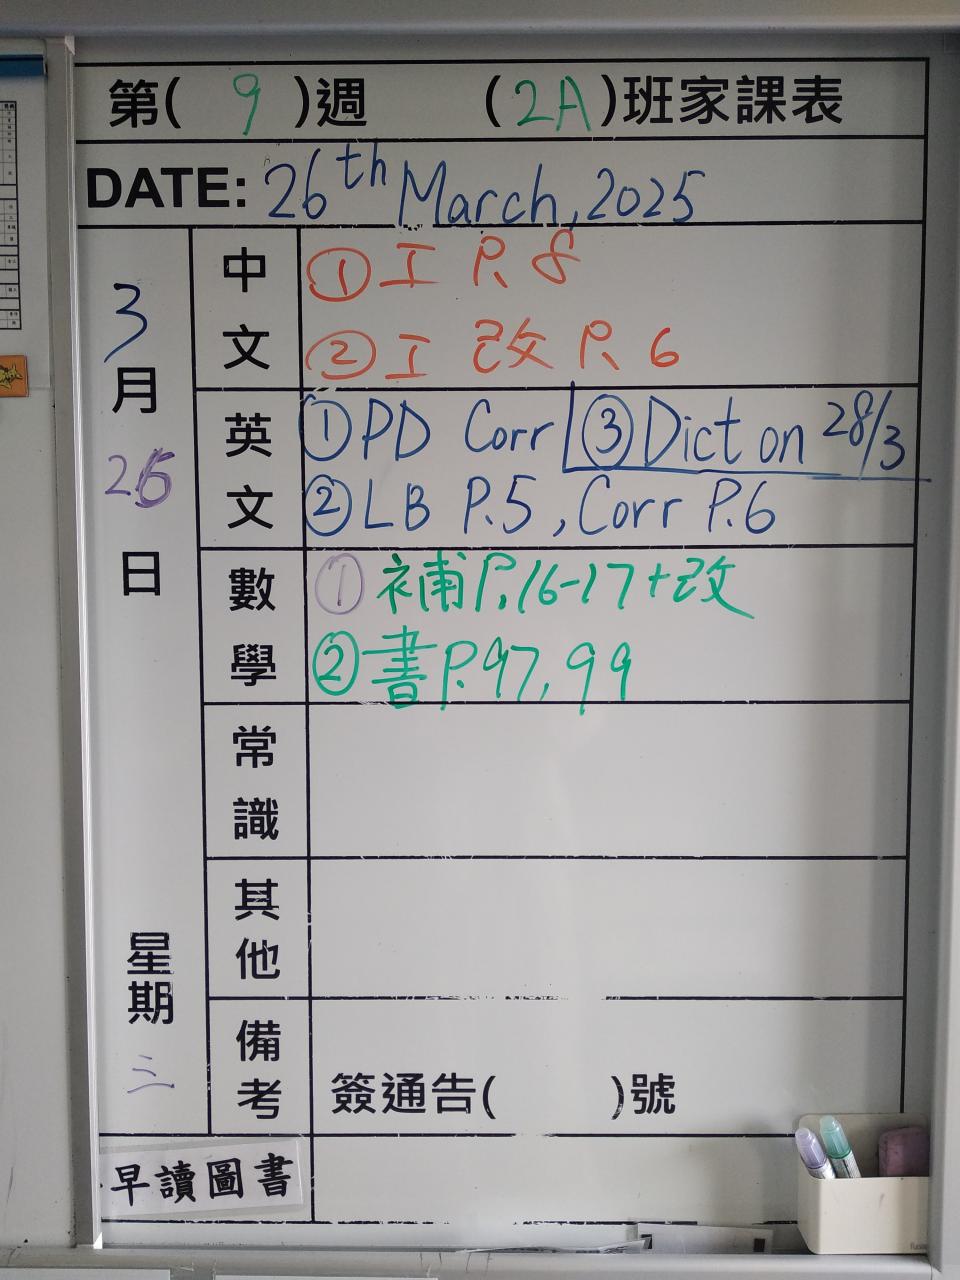 第( 9 )週 (2A)班家課表
DATE: 26th March, 2025
3月26日 星期三
中文
① 工 P.8
② 工 改 P.6
英文
① PD Corr ③ Dict on 28/3
② LB P.5, Corr P.6
數學
① 補 P.16-17+改
② 書 P.97, 99
常識
其他
備考
簽通告( )號
早讀圖書